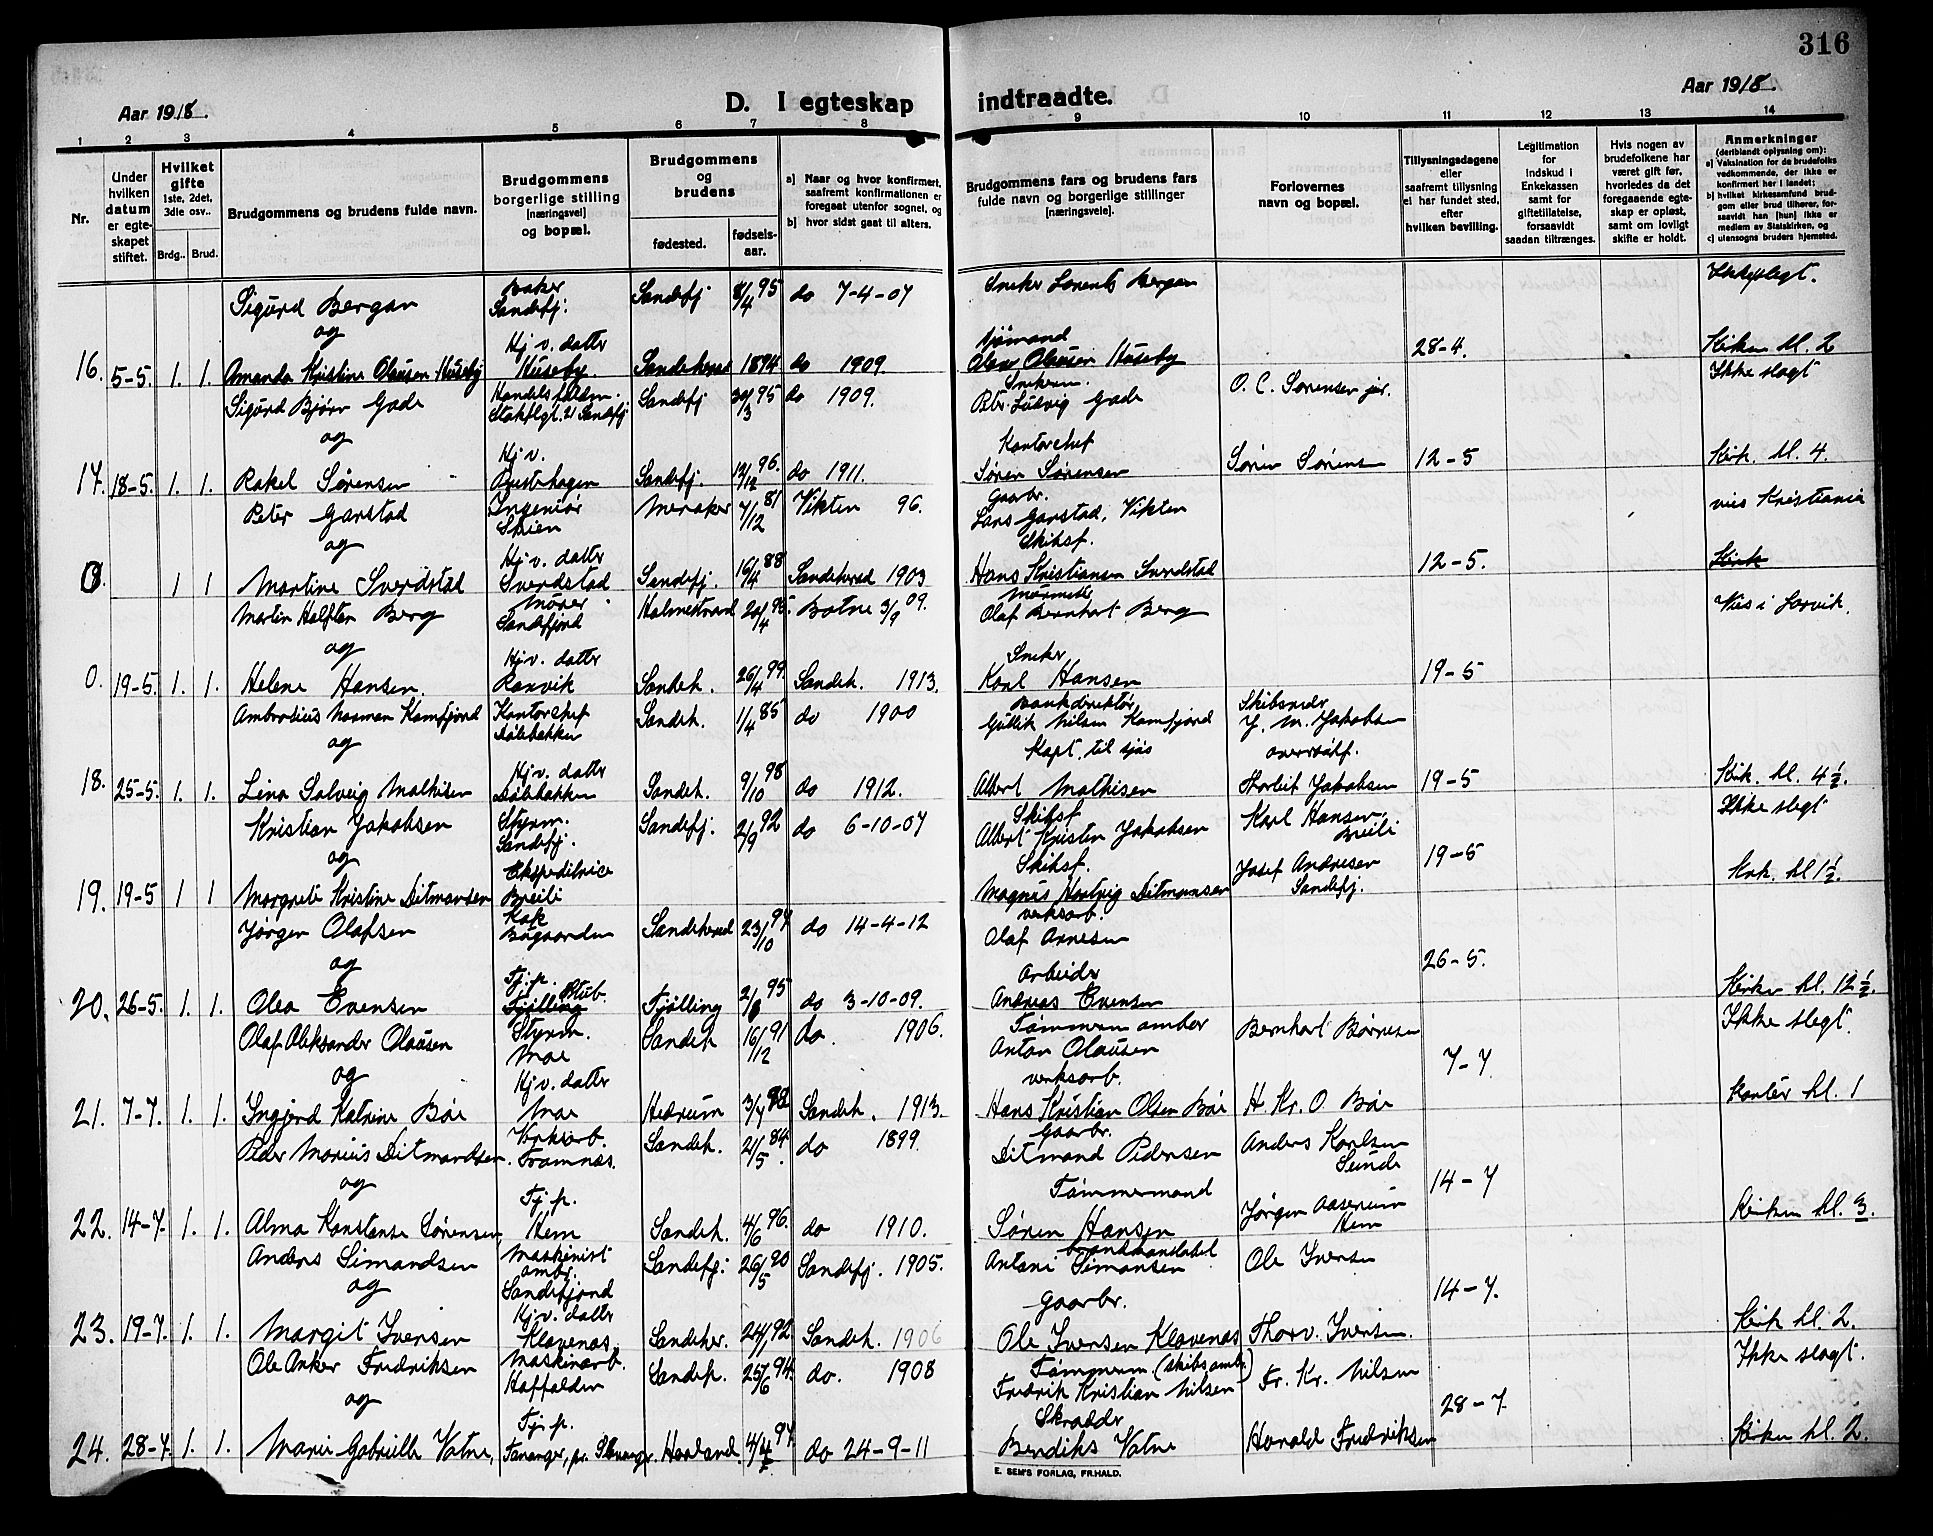 316
Aar 1918.
D. I egteskap indtraadte.
Aar 1918
1 2 3 4 5 6 7 8 9 10 11 12 13 14
Nr.
Under hvilken datum er egteskapet stiftet.
Hvilket gifte 1ste, 2det, 3die osv..
Brdg.. Brud.
Brudgommens og brudens fulde navn.
Brudgommens borgerlige stilling [næringsvei] og bopæl.
Brudgommens og brudens
fødested. fødsels-aar.
a] Naar og hvor konfirmert, saafremt konfirmationen er foregaat utenfor sognet, og
b] hvor sidst gaat til alters.
Brudgommens fars og brudens fars fulde navn og borgerlige stillinger [næringsveie].
Forlovernes navn og bopæl.
Tillysningsdagene eller saafremt tillysning ei har fundet sted, efter hvilken bevilling.
Legitimation for Indskud i Enkekassen samt for giftetillatelse, forsaavidt saadan tiltrænges.
Hvis nogen av brudefolkene har været gift før, hvorledes da det foregaaende egteskap er opløst, samt om lovligt skifte er holdt.
Anmerkninger (deriblandt oplysning om): a) Vaksination for de brudefolks vedkommende, der ikke er konfirmert her i landet; b) hvilket kirkesamfund brudgom eller brud tilhører, forsaavidt han [hun] ikke er medlem av Statskirken, og c) utensogns bruders hjemsted.
Sigurd Bergan Baker Sandefj. Sandefj 8/4 95 do 7-4-07 Snekr Lorents Bergan Ikke slegt.
og
16. 5-5. 1. 1. Amanda Kristine Olausen Huseby Hj v. datter Huseby. Sandeherred 1894 do 1909. Olaus Olausen Huseby 28-4. Kirken kl. 2
Sigurd Bjørn Gade Sandefj 30/3 95 do 1909. Ludvig Gade O. C. Sørensen jr. Ikke slegt
og
17. 18-5. 1. 1. Rakel Sørensen Hj v. Sandefj. 12/12 96. do 1911. Kontorchef Søren Sørensen Søren Sørensen 12-5 Kirk. kl. 4.
Peter Garstad Ingeniør Skien Meraker 7/12 81 Vikten 96. Gaarbr. Lars Garstad, Vikten vies Kristiania
og
0. 1 1 Martine Sverdstad Hj v. datter Sverdstad Sandefj. 16/4 88 Sandeherred 1903 Skibsf. Hans Kristiansen Sverdstad 12-5. Kirk
Martin Halften Berg Murer Sandefjord Holmestrand 20/4 95. Botne 3/9 09. Murmester Olaf Bernhart Berg Vies i Larvik.
og
0. 19-5. 1. 1. Helene Hansen. Hj v. datter Ranvik Sandeh. 26/4 99. Sandeh. 1913. Snekr Karl Hansen 19-5
Ambrosius Norman Kamfjord Kontorchef Dølebakken Sandeh. 1/4 85 do 1900 Bankdirektør Gullik Nilsen Kamfjord Skibsreder J. M. Jakobsen
og
18. 25-5. 1. 1. Lina Solveig Mathisen Hj v. datter Dølebakken Sandeh. 9/10 98 do 1912. Kapt. til sjøs Albert Mathisen Thorleif Jakobsen 19-5 Kirk. kl. 4 1/2.
Kristian Jakobsen Styrm. Sandefj. Sandefj. 2/9 92 do 6-10-07 Skibsf Albert Kristen Jakobsen Karl Hansen, Breili Ikke slegt
og
19. 19-5 1 1 Margrete Kristine Ditmansen Ekspeditrice Breili Skibsf. Magnus Hartvig Ditmansen Josef Andresen Sandefj. 19-5 Kirk. kl 1 1/2.
Jørgen Olafsen Kok Bugaarden Sandeherred 23/10 97 do 14-4-12 verksarb. Olaf Arnesen
og
20. 26-5. 1. 1. Olea Evensen Tj. p. Stub. Tjølling Tjølling 95 do 3-10-09. Arbeider Andreas Evensen 26-5. Kirken kl. 12 1/2.
Olaf Aleksander Olausen Styrm. Moe Sandeh 16/12 91 do. 1906. Tømmerm ombor Anton Olausen Bernhart Børresen Ikke slegt.
og
21. 7-7. 1. 1. Ingjerd Katrine Bøe Hj v. datter Moe Hedrum Sandeh. 1913. verksarb. Hans Kristian Olsen Bøe H Kr. O Bøe 7-7 Kontor kl. 1
Peder Marius Ditmandsen. Verksarb. Framnæs. Sandeh. 21/5 84. do 1899. Gaarbr. Ditmand Pedersen Anders Karlsen Sunde
og
22. 14-7. 1. 1. Alma Konstanse Sørensen, Tj p. Hem Sandeh. 4/6 96. do 1910. Tømmermand Søren Hansen Jørgen Aaserum Hem 14-7 Kirken kl. 3.
Anders Simandsen Maskinist ombr. Sandefjord Sandefj. 26/5 90 Sandefj. 1905. Antoni Simansen Ole Iversen
og
23. 19-7. 1. 1. Margit Iversen Hj v. datter Klavenæs. Sandeher. 24/1 92. Sandeh. 1906 Gaarbr. Ole Iversen Klavenæs Thorv. Iversen. 14-7. Kirk kl. 2.
Ole Anker Fredriksen Maskinarb. Haffalden Sandeh. 25/6 94. do. 1908 Tømmerm (skibs ombr.) Fredrik Kristian Nilsen Fr. Kr. Nilsen Ikke slegt.
og
24. 28-7. 1. 1. Marie Gabrielle Vatne, Tj. p. Tananger, pr. Stavanger. Havland. do 24-9-11 Skrædder Bendiks Vatne Harald Fredriksen 28-7. Kirken kl. 2.
E. SEM'S FORLAG, FR.HALD.